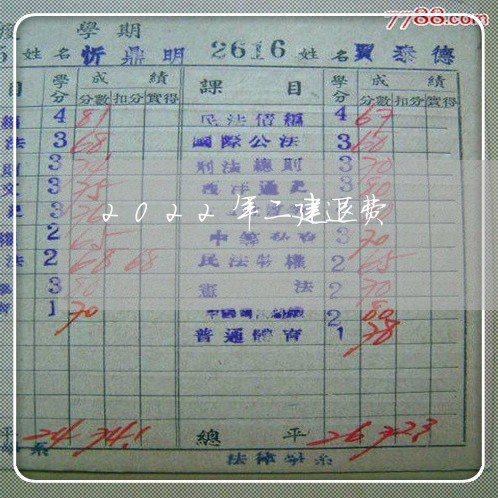 7788.com
學期
姓名 忻鼎明 2616 姓名 賈泰德
目 學分 成績 課目 學分 成績
分數 扣分 實得 分數 扣分 實得
4 81 民法債編 4 67
法 3 68 國際公法 3 60
3 刑法總則 3 70
3 75 西洋通史 3 80
2022年二建退费
2 65 中等 3 70
法 2 68 68 民法物權 2 65
3 80 憲法 2 70
1 70 2 80
普通體育 1 78
平 24 74.1 總平 26 72.3
系 法律學系